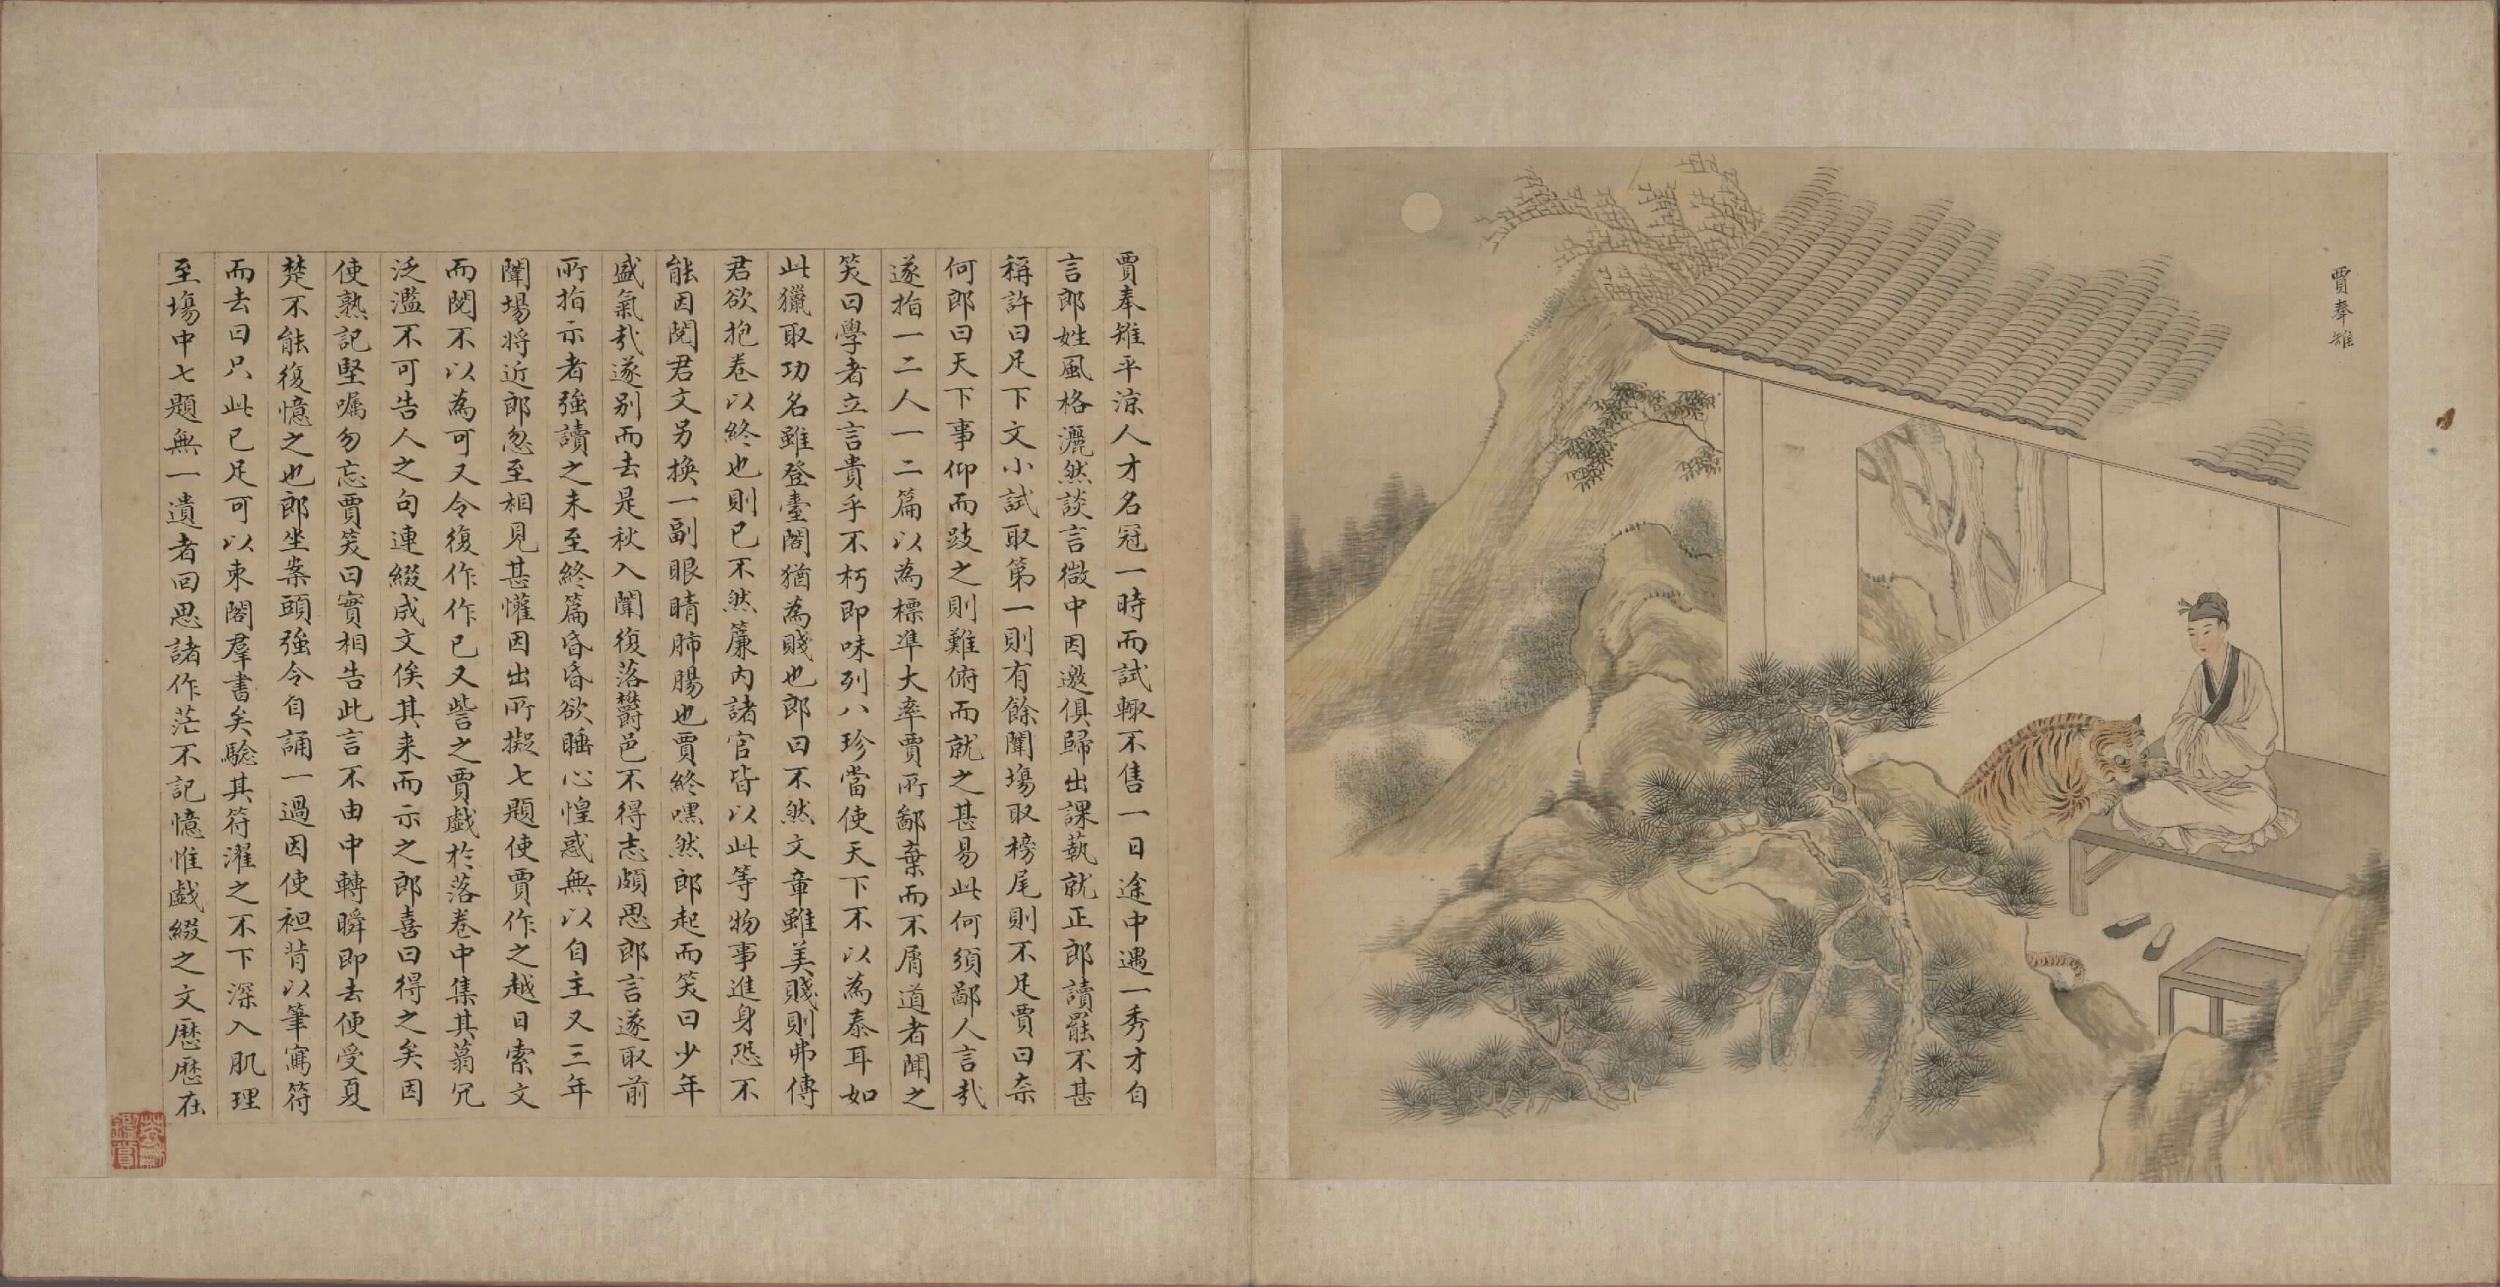 賈奉雉
賈奉雉平涼人才名冠一時而試輙不售一日途中遇一秀才自
言郎姓風格灑然談言微中因邀俱歸出課蓺就正郎讀罷不甚
稱許曰足下文小試取第一則有餘闈塲取榜尾則不足賈曰奈
何郎曰天下事仰而跂之則難俯而就之甚易此何須鄙人言㢤
遂指一二人一二篇以為標準大率賈所鄙棄而不屑道者聞之
笑曰學者立言貴乎不朽即味列八珍當使天下不以為泰耳如
此獵取功名雖登臺閣猶為賤也郎曰不然文章雖美賤則弗傳
君欲抱卷以終也則已不然簾內諸官皆以此等物事進身恐不
能因閱君文另換一副眼睛肺腸也賈終嘿然郎起而笑曰少年
盛氣㢤遂别而去是秋入闈復落欝邑不得志頗思郎言遂取前
所指示者強讀之未至終篇昏昏欲睡心惶惑無以自主又三年
闈場將近郎忽至相見甚懽因出所擬七題使賈作之越日索文
而閱不以為可又令復作作已又訾之賈戲於落卷中集其蕕冗
泛濫不可告人之句連綴成文俟其来而示之郎喜曰得之矣因
使熟記堅嘱勿忘賈笑曰實相告此言不由中轉瞬即去便受夏
楚不能復憶之也郎坐案頭強令自誦一過因使袒背以筆寫符
而去曰只此已足可以束閣羣書矣驗其符濯之不下深入肌理
至塲中七題無一遺者回思諸作茫不記憶惟戲綴之文歷歷在